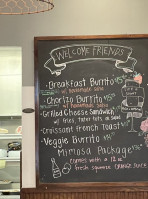 WELCOME FRIENDS
Breakfast Burrito
w/ homemade salsa
Chorizo Burrito
w/ homemade salsa
Grilled Cheese Sandwich
w/ fries, tater tots or salad
Croissant french Toast
Veggie Burrito
Mimosa Package
comes with a 12 oz
fresh squeezed ORANGE JUICE